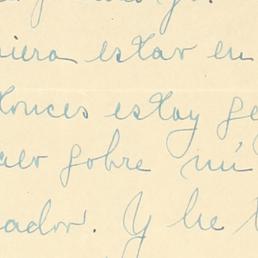 iera estav en
tonces estoy ge
aer sobre mi
ador. Y he t